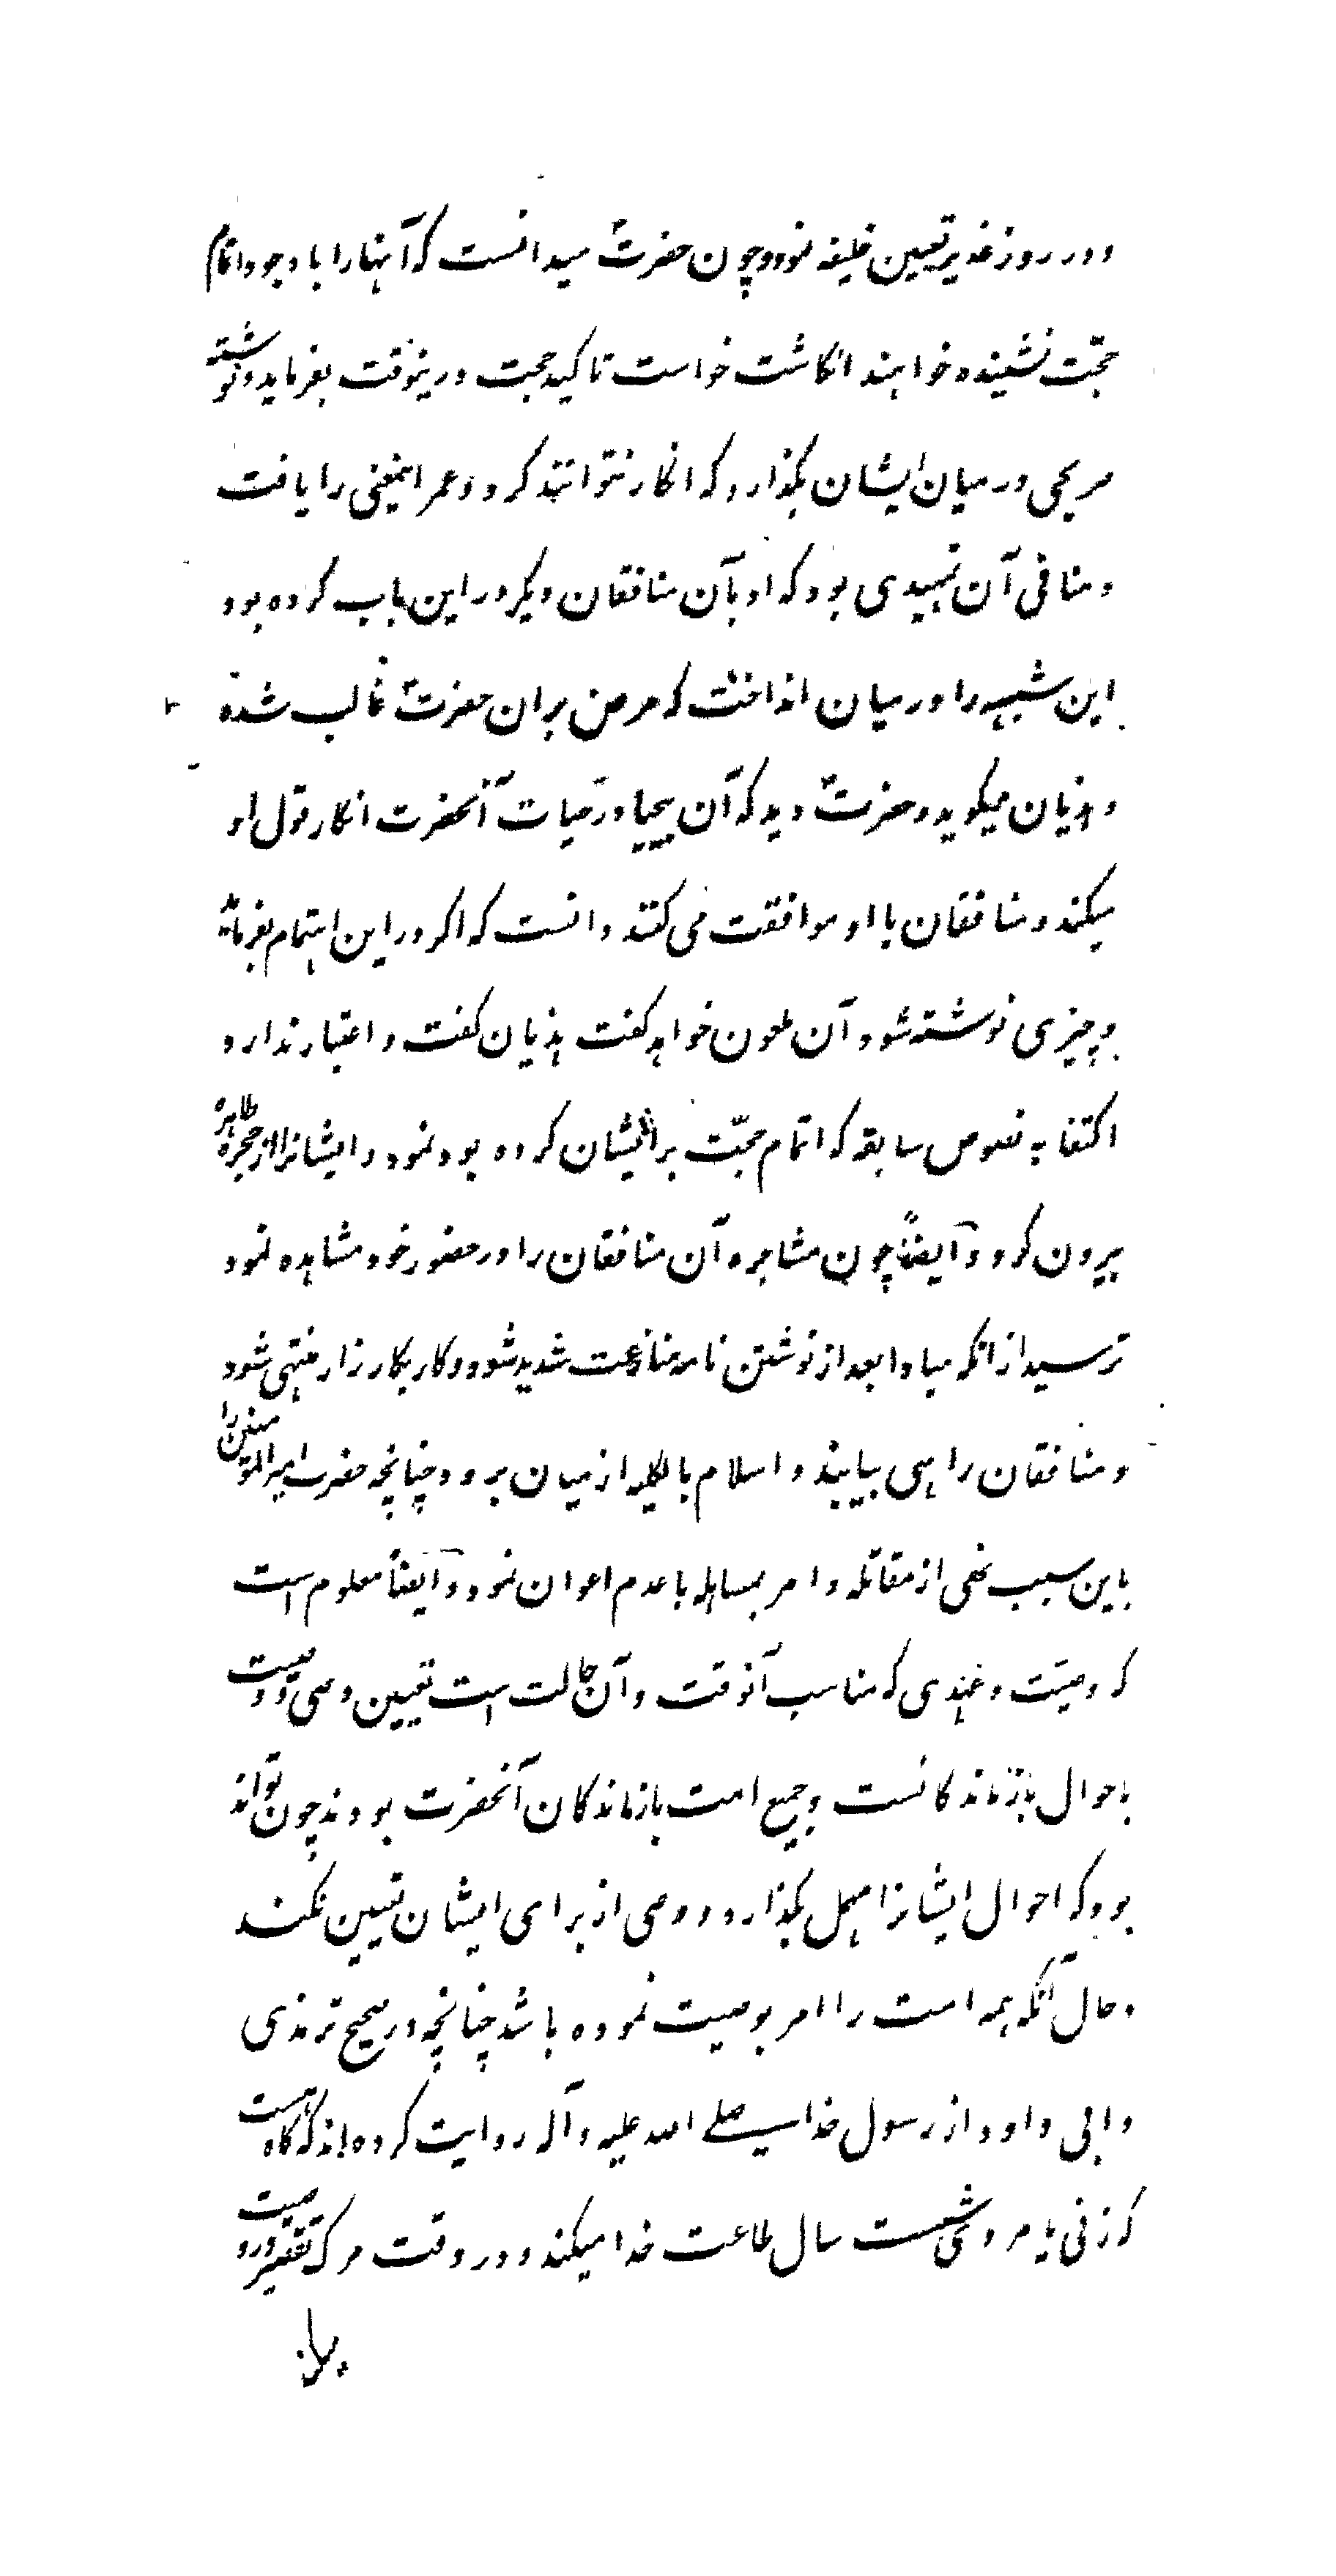 و در روز غدیر تعیین خلیفه نمود و چون حضرتؐ میدانست که آنها را با وجود اتمام
حجّت نشنیده خواهند انگاشت خواست تاکید حجت درینوقت بفرماید و نوشته
صریحی در میان ایشان بگذارد که انکار نتوانند کرد و عمر اینمعنی را یافت
و منافی آن تمهیدی بود که او بآن منافقان دیگر در این باب کرده بود
این شبهه را در میان انداخت که مرض بران حضرتؐ غالب شده
و هذیان میگوید و حضرتؐ دید که آن بیحیا در حیات آنحضرت انکار قول او
میکند و منافقان با او موافقت می کنند دانست که اگر در این اهتمام بفرماید
و چیزی نوشته شود آن ملعون خواهد گفت هذیان گفت و اعتبار ندارد
اکتفا به نصوص سابقه که اتمام حجّت بر ایشان کرده بود نمود و ایشانرا از حجره طاهره
بیرون کرد و آیضاً چون مشاجره آن منافقان را در حضور خود مشاهده نمود
ترسید از انکه مبادا بعد از نوشتن نامه منازعت شدید شود و کار بکارزار منتهی شود
و منافقان راهی بیابند و اسلام بالکلیه از میان برود چنانچه حضرت امیر المؤمنین را
باین سبب نهی از مقاتله و امر بمساهله با عدم اعوان نمود و آیضاً معلوم است
که وصیّت و عهدی که مناسب آنوقت و آن حالت است تعیین وصی و وصیت
باحوال بازماندگانست و جمیع امت بازماندگان آنحضرت بودند چون تواند
بود که احوال ایشانرا مهمل بگذارد و وصی از برای ایشان تعیین نکند
و حال آنکه همه امت را امر بوصیت نموده باشد چنانچه در صحیح ترمذی
و ابی داود از رسول خدا صلے الله علیه و آله روایت کرده اند که گاه هست
که زنی یا مردی شصت سال طاعت خدا میکند و در وقت مرگ تقصیر در وصیت